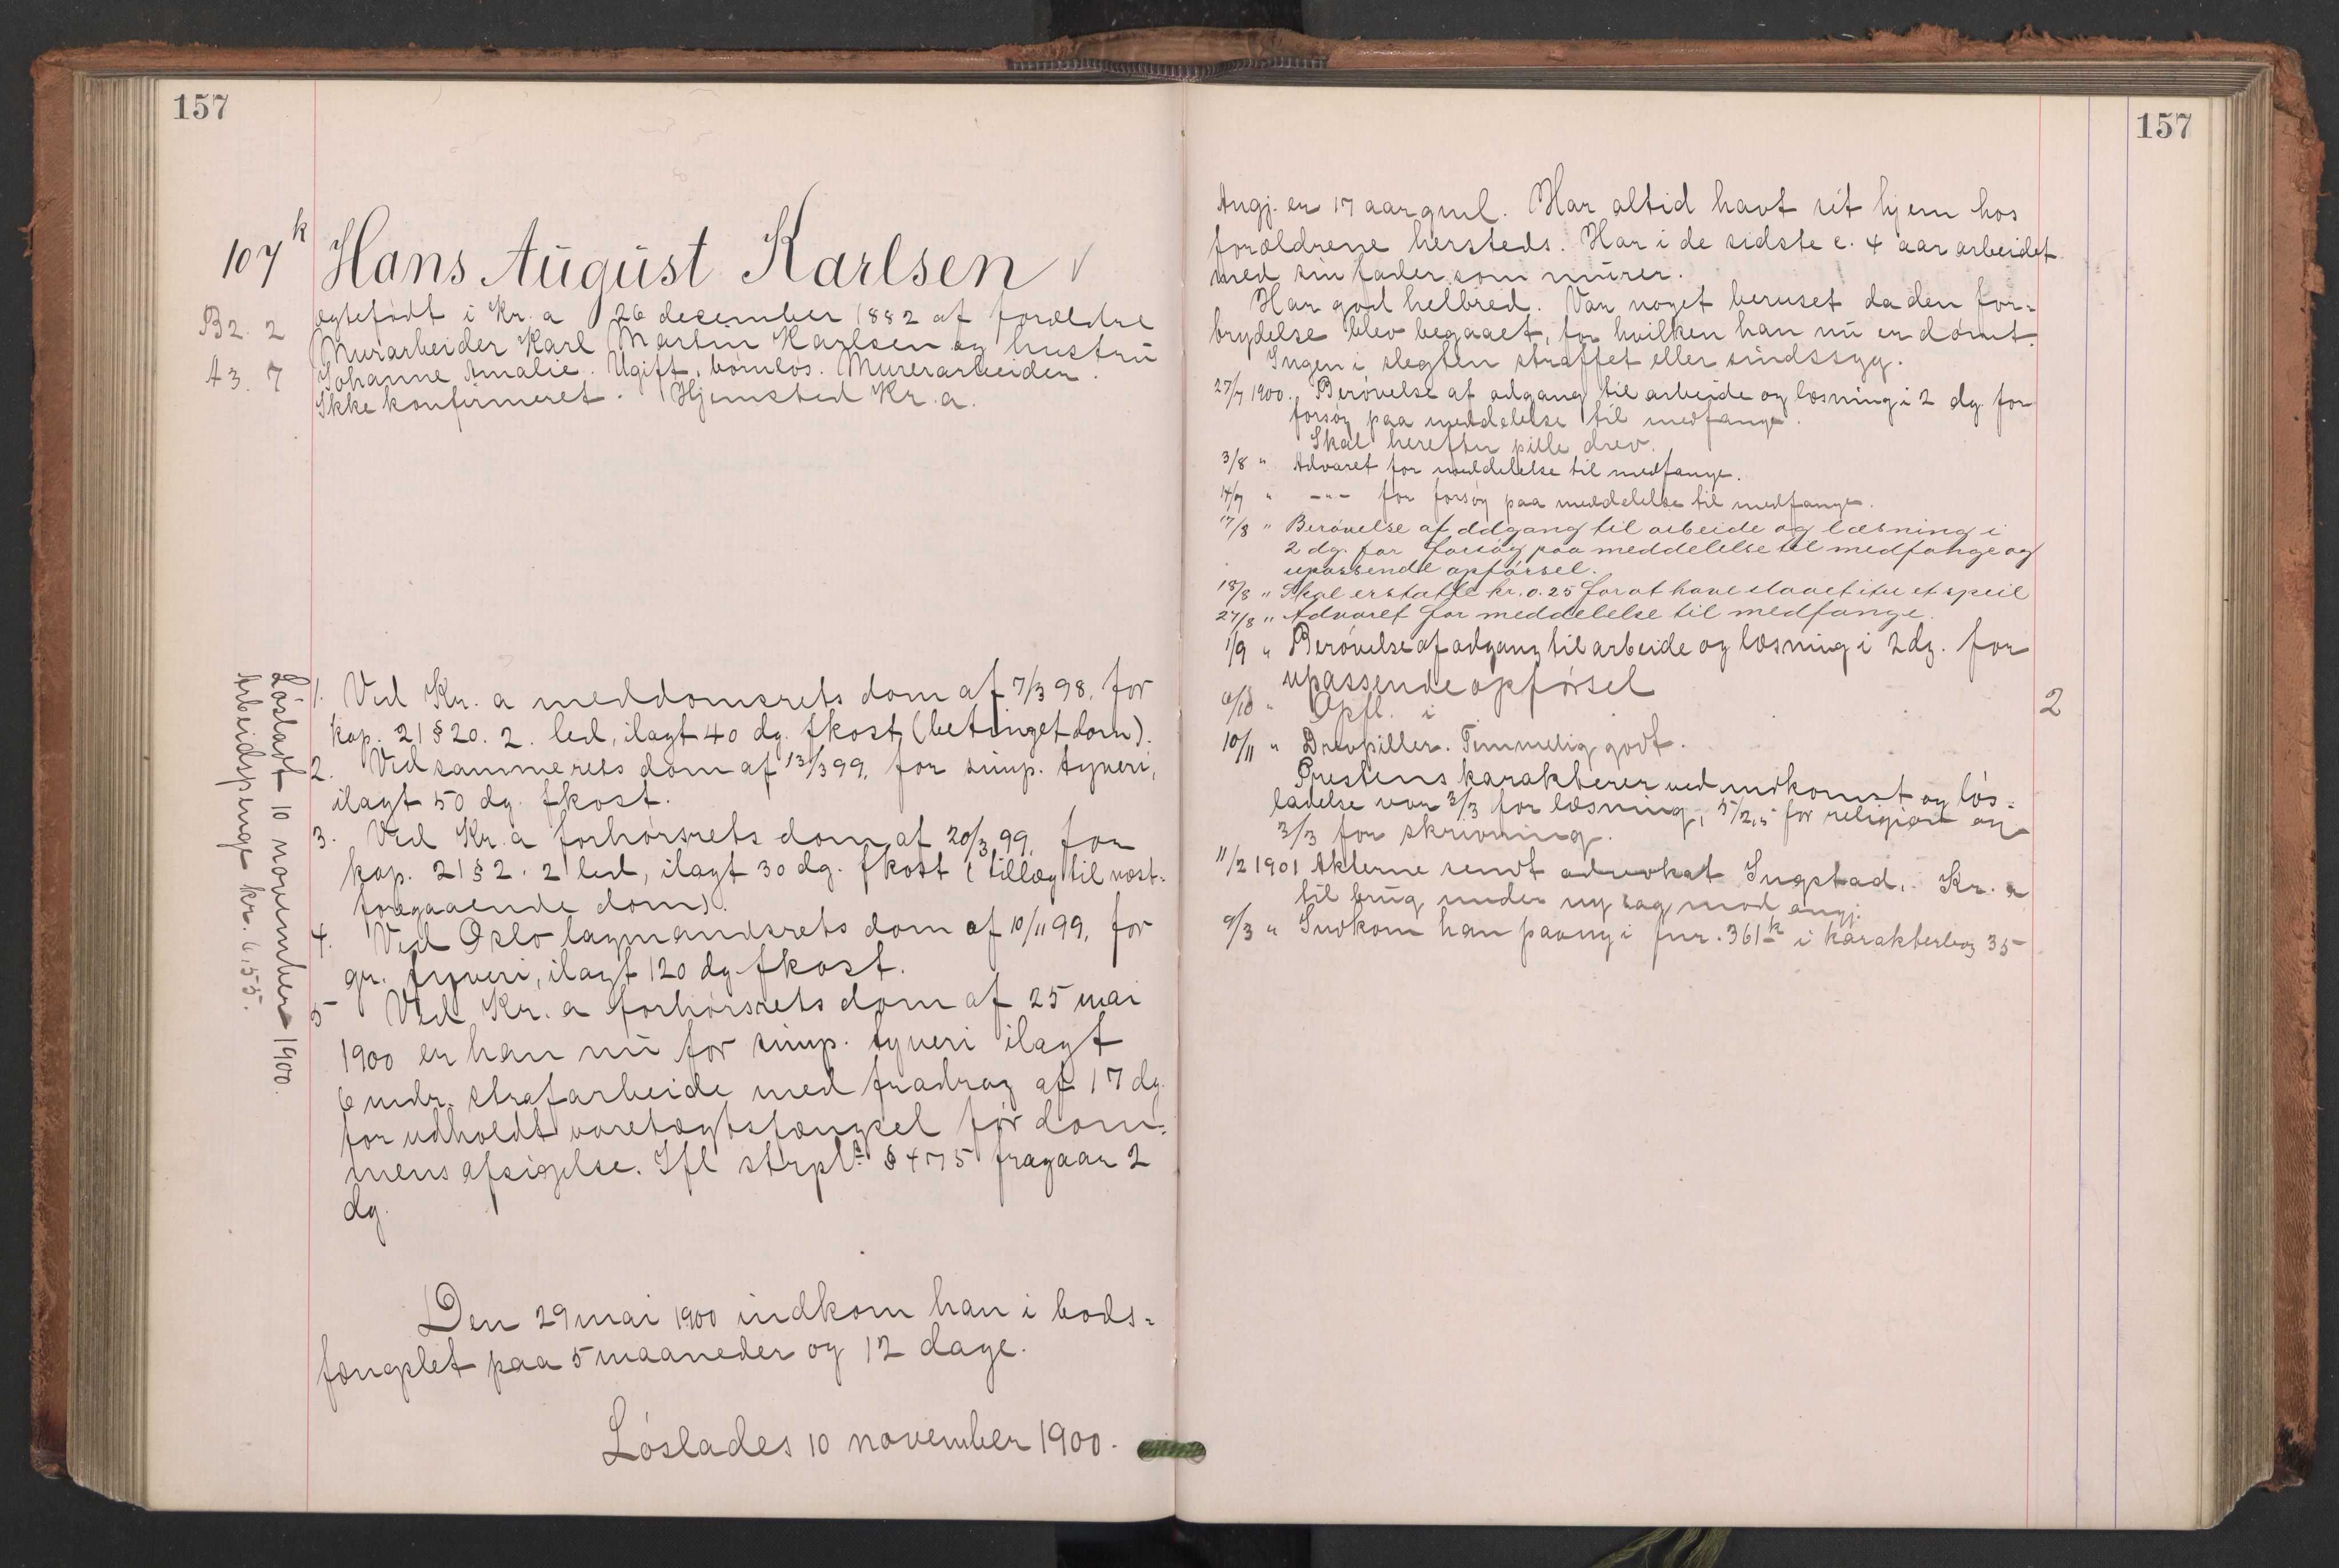 157
107k Hans August Karlsen
B2. 2
A3. 7
egtefødt i Kr.a 26 december 1882 af forældre
Murarbeider Karl Martin Karlsen og hustru
Johanne Amalie. Ugift, børnløs. Murerarbeider.
Ikke konfirmeret. Hjemsted Kr.a.
Løsladt 10 november 1900.
Arbeidspenge kr. 6,55.
1. Ved Kr.a meddomsrets dom af 7/3 98. for
kap. 21 § 20. 2. led, ilagt 40 dg. fkost (betinget dom).
2. Ved samme rets dom af 13/3 99, for simp. tyveri,
ilagt 50 dg. fkost.
3. Ved Kr.a forhørsrets dom af 20/3 99, for
kap. 21 § 2. 2 led, ilagt 30 dg. fkost (tillæg til næst-
foregaaende dom).
4. Ved Oslo lagmandsrets dom af 10/11 99, for
gr. tyveri, ilagt 120 dg fkost.
5 Ved Kr.a forhørsrets dom af 25 mai
1900 er han nu for simp. tyveri ilagt
6 mdr. strafarbeide med fradrag af 17 dg.
for udholdt varetægtsfængsel før dom-
mens afsigelse. Ifl strpl. § 475 fragaar 2
dg.
Den 29 mai 1900 indkom han i bods-
fængslet paa 5 maaneder og 12 dage.
Løslades 10 november 1900.
157
Angj. er 17 aar gml. Har altid havt sit hjem hos
forældrene hersteds. Har i de sidste c. 4 aar arbeidet
med sin fader som murer.
Har god helbred. Var noget beruset da den for-
brydelse blev begaaet, for hvilken han nu er dømt.
Ingen i slegten straffet eller sindssyg.
27/7 1900. Berøvelse af adgang til arbeide og læsning i 2 dg. for
forsøg paa meddelelse til medfange.
Skal herefter pille drev.
3/8 " Advaret for meddelelse til medfange.
" -"- for forsøg paa meddelelse til medfange.
17/8 " Berøvelse af adgang til arbeide og læsning i
2 dg. for forsøg paa meddelelse til medfange og
upassende opførsel.
18/8 " Skal erstatte kr. 0.25 for at have slaaet itu et speil
27/8 " Advaret for meddelelse til medfange.
1/9 " Berøvelse af adgang til arbeide og læsning i 2 dg. for
upassende opførsel
" Opfl. i 2
10/11 " Drevpiller. Temmelig godt.
Prestens karakterer ved indkomst og løs-
ladelse var 3/3 for læsning, 5/2,5 for religion og
3/3 for skrivning.
11/2 1901 Akterne sendt advokat Ingstad, Kr.a
til brug under ny sag mod angj.
9/3 " Indkom han paany i fnr. 361k i karakterbog 35